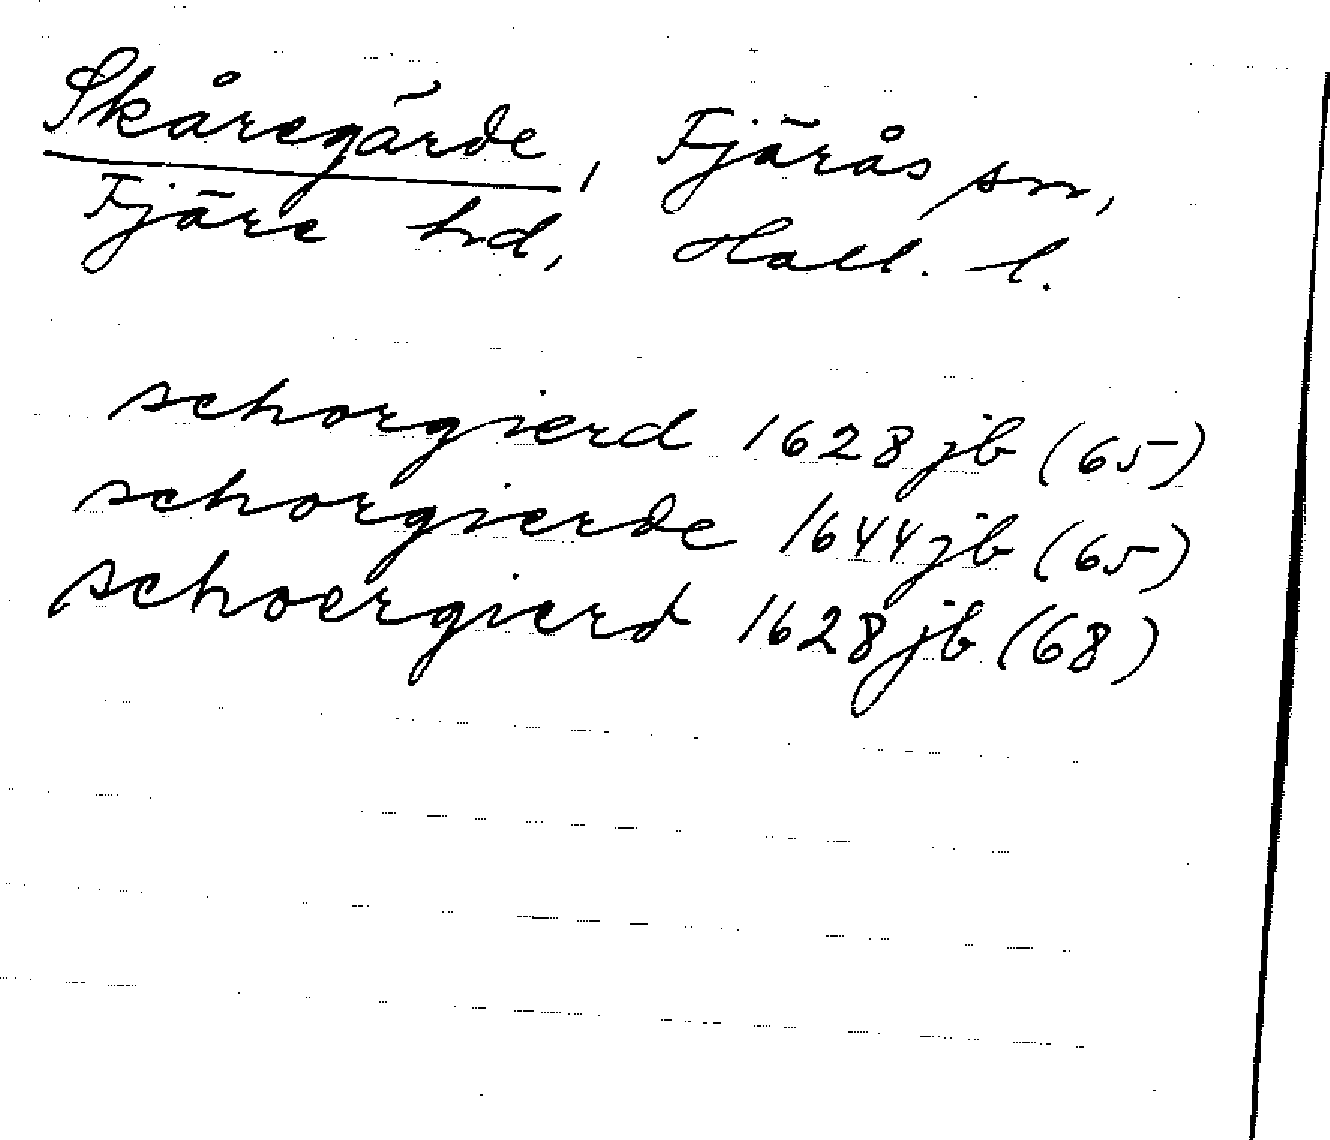 Skåregärde, Fjärås sn,
Fjäre hd, Hall. l.
schorgierd 1628 jb (65)
schorgierde 1644 jb (65)
schoergierd 1628 jb (68)